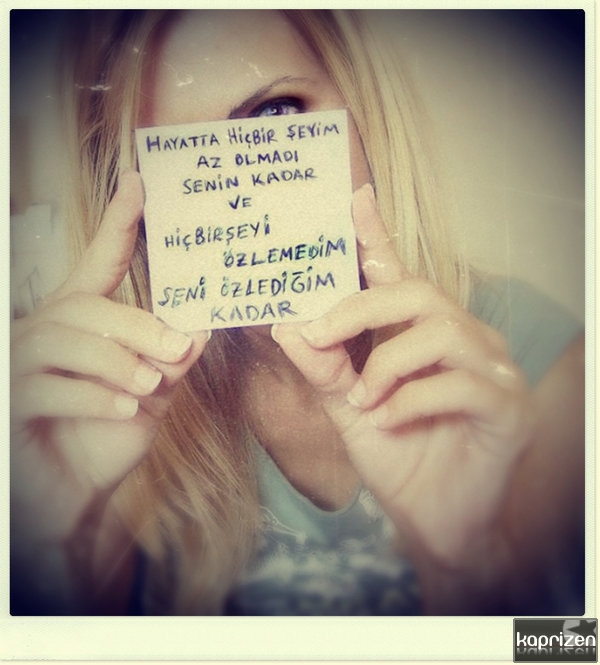 HAYATTA HİÇBİR ŞEYİM
AZ OLMADI
SENİN KADAR
VE
HİÇBİRŞEYİ
ÖZLEMEDİM
SENİ ÖZLEDİĞİM
KADAR
kaprizen